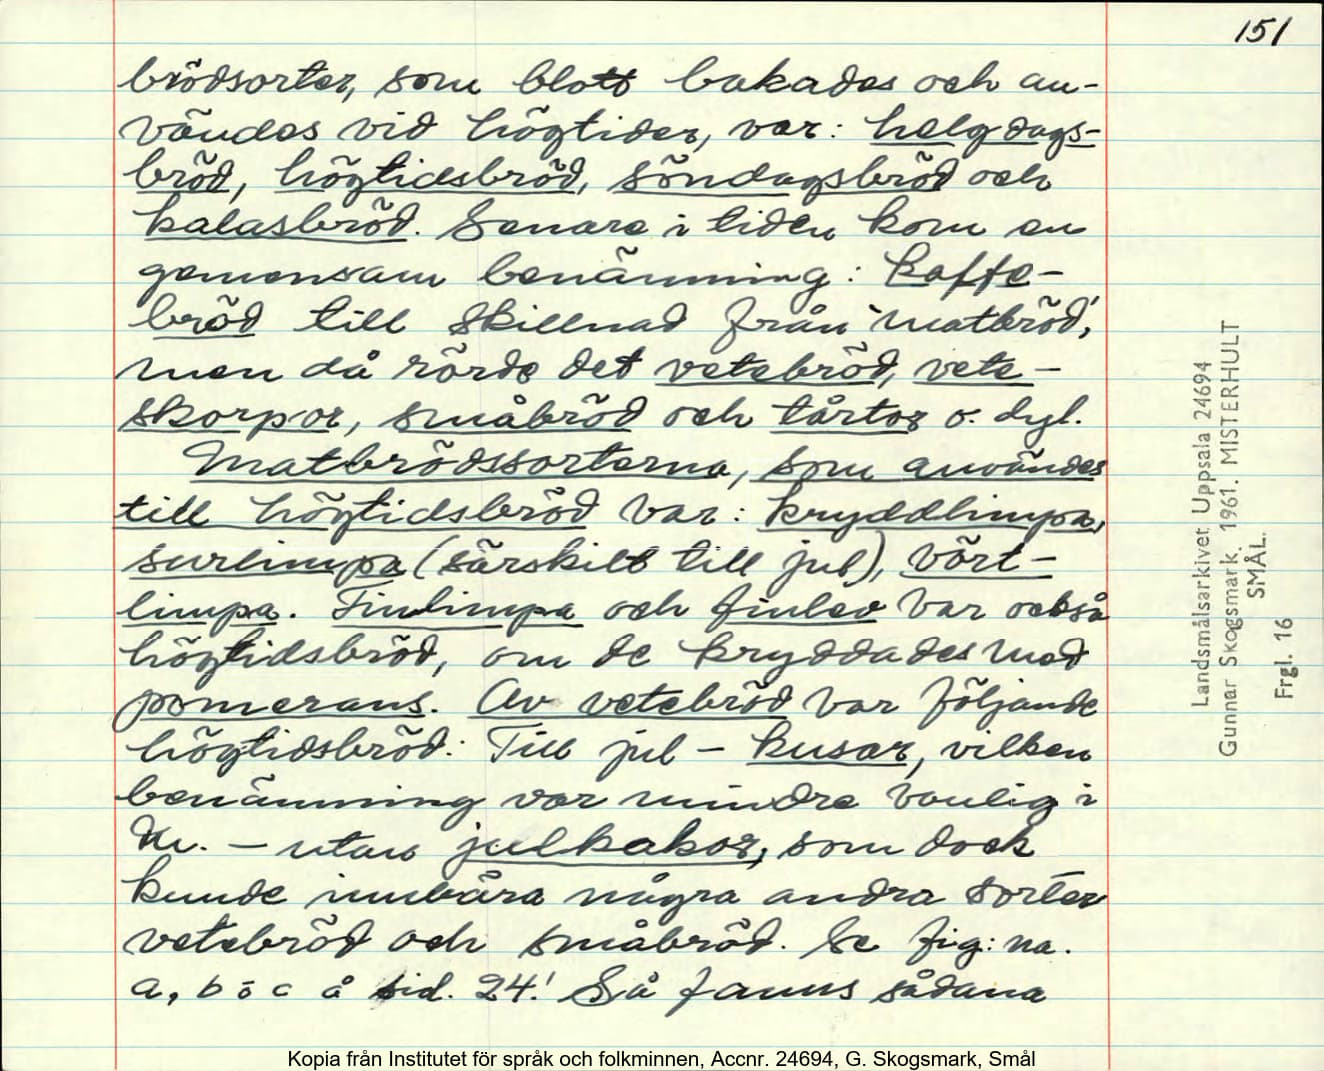 151
brödsorter, som blott bakades och an-
vändes vid högtider, var: helgdags-
bröd, högtidsbröd, söndagsbröd och
kalasbröd. Senare i tiden kom en
gemensam benämning: kaffe-
bröd till skillnad från "matbröd",
men då rörde det vetebröd, vete-
skorpor, småbröd och tårtor o. dyl.
Matbrödssorterna, som användes
till högtidsbröd var: kryddlimpa,
surlimpa (särskilt till jul), vört-
limpa. Finlimpa och finlev var också
högtidsbröd, om de kryddades med
pomerans. Av vetebröd var följande
högtidsbröd: Till jul – kusar, vilken
benämning var mindre vanlig i
M. – utan julkakor, som dock
kunde innebära några andra sorter
vetebröd och småbröd. Se fig:na.
a, b o c å sid. 24! Så fanns sådana
Landsmålsarkivet Uppsala 24694
Gunnar Skogsmark. 1961. MISTERHULT
SMÅL.
Frgl. 16
Kopia från Institutet för språk och folkminnen, Accnr. 24694, G. Skogsmark, Smål